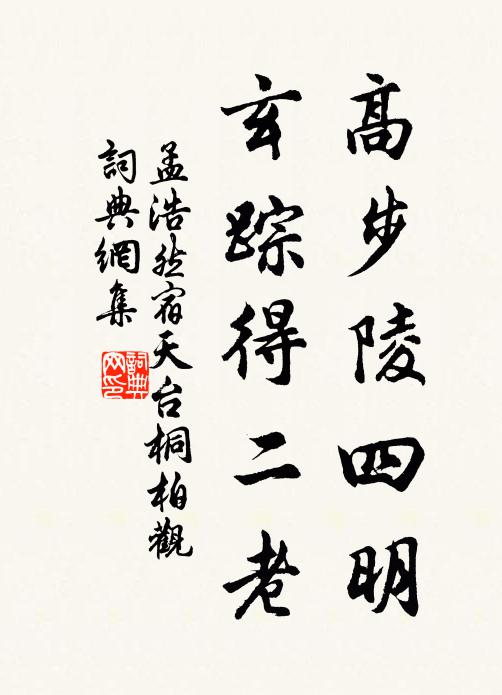 高步陵四明
玄踪得二老
孟浩然宿天台桐柏觀
詞典網集
詞典
网印